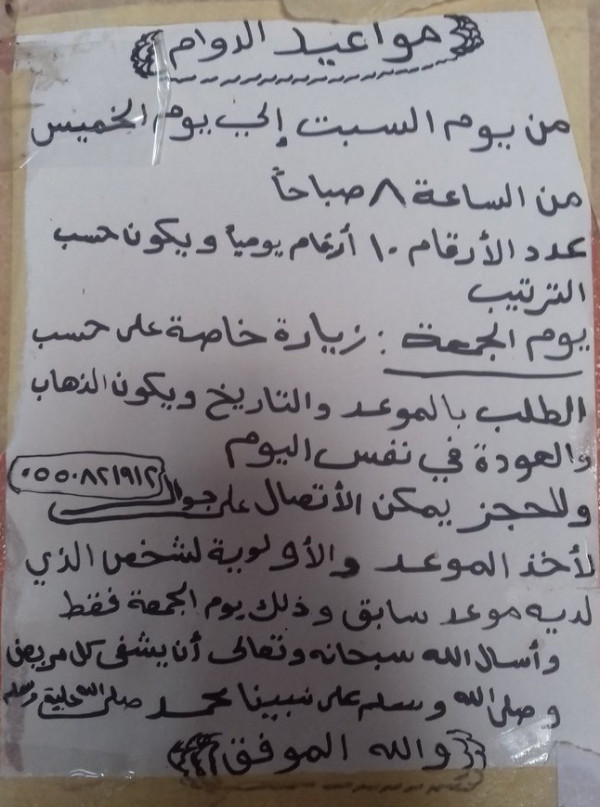 مواعيد الدوام
من يوم السبت إلي يوم الخميس
من الساعة ٨ صباحاً
عدد الأرقام ١٠ أرقام يومياً ويكون حسب
الترتيب
يوم الجمعة : زيارة خاصة على حسب
الطلب بالموعد والتاريخ ويكون الذهاب
والعودة في نفس اليوم
وللحجز يمكن الأتصال على جوال ٠٥٥٠٨٢١٩١٢
لأخذ الموعد والأولوية لشخص الذي
لديه موعد سابق وذلك يوم الجمعة فقط
وأسال الله سبحانه وتعالى أن يشفى كل مريض
وصلى الله وسلم على نبينا محمد صلى الله عليه وسلم
والله الموفق